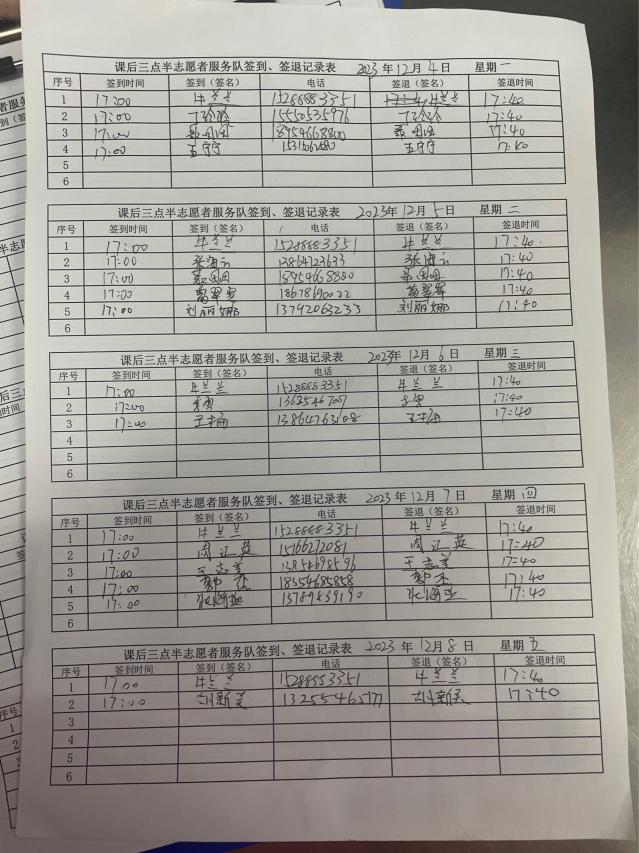 课后三点半志愿者服务队签到、签退记录表 2023年12月4日 星期一
序号 签到时间 签到（签名） 电话 签退（签名） 签退时间
1 17:00 牛兰兰 15288883351 牛兰兰 17:40
2 17:00 15550535976 17:40
3 17:00 18954668800 17:40
4 17:00 王宁宁 王宁宁 17:40
5
6
课后三点半志愿者服务队签到、签退记录表 2023年12月5日 星期二
序号 签到时间 签到（签名） 电话 签退（签名） 签退时间
1 17:00 牛兰兰 15288883351 牛兰兰 17:40
2 17:00 张海云 13864723633 张海云 17:40
3 17:00 18954668800 17:40
4 17:00 18678690022 17:40
5 17:00 刘丽娜 13792063233 刘丽娜 17:40
6
课后三点半志愿者服务队签到、签退记录表 2023年12月6日 星期三
序号 签到时间 签到（签名） 电话 签退（签名） 签退时间
1 17:00 牛兰兰 15288883351 牛兰兰 17:40
2 17:00 17:40
3 17:00 13864763108 17:40
4
5
6
课后三点半志愿者服务队签到、签退记录表 2023年12月7日 星期四
序号 签到时间 签到（签名） 电话 签退（签名） 签退时间
1 17:00 牛兰兰 15288883351 牛兰兰 17:40
2 17:00 周江英 15166272081 周江英 17:40
3 17:00 王志美 13854698596 王志美 17:40
4 17:00 18354685858 17:40
5 17:00 13789839190 17:40
6
课后三点半志愿者服务队签到、签退记录表 2023年12月8日 星期五
序号 签到时间 签到（签名） 电话 签退（签名） 签退时间
1 17:00 牛兰兰 1528853351 牛兰兰 17:40
2 17:00 胡新美 13255465177 胡新美 17:40
3
4
5
6